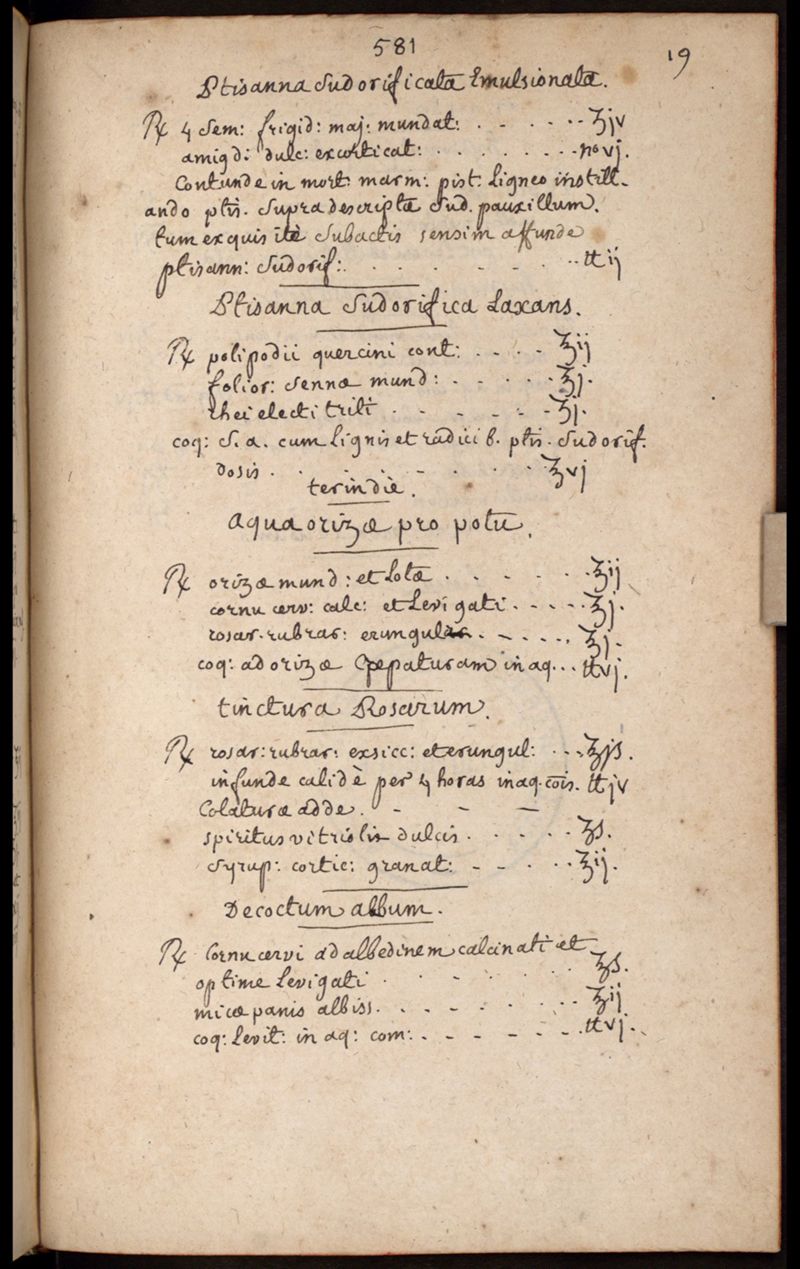 581
19
Ptisanna Sudorificatā Emulsionatā.
℞ 4 Sem: frigid: maj: mundat: . - . - . . ℥jv
amigd: dulc: excorticat: . . . . . . - . . nº vj.
Contunde in mort: marm: pist: Ligneo instill-
ando ptis. Supra descriptā Sud. pauxillum.
tum exquisitè Subactis sensim affunde
ptisann: Sudorif: . . . . - . - . . ℔ ij
Ptisanna Sudorifica Laxans.
℞ polipodii quercini cont: . - . - ℥ij
folior: Sennæ mund: . - . . . ℥j.
rhei electi triti . - . - . - - ℥j.
coq: S. a. cum Lignis et radici b. ptis. Sudorif.
dosis . . . . - . . . ℥vj
ter in die.
Aqua orizæ pro potu.
℞ orizæ mund: et Lotæ . . - . - . . ℥ij
cornu cerv: calc: et Levigati . - . - . ℥j.
rosar. rubrar: exungular. . - . . . . ℥j.
coq: ad orizæ Crepaturam in aq. . . ℔vj.
tinctura Rosarum.
℞ rosar: rubrar: exsicc: et exungul: . . . ℥jß.
infunde calidè per 4 horas in aq. cõis. ℔jv
Colaturæ adde . - - —
spiritus vitrioli dulcis . . . . . . ℥ß.
Syrup: cortic: granat: - - . . . . ℥ij.
Decoctum album.
℞ Cornu cervi ad albedinem calcinati et
optime Levigati . . - . . . . ℥ß.
micæ panis albiss. . . - . - . . . - ℥ij
coq: Levit: in aq: com: . . - - . - - . ℔vj.